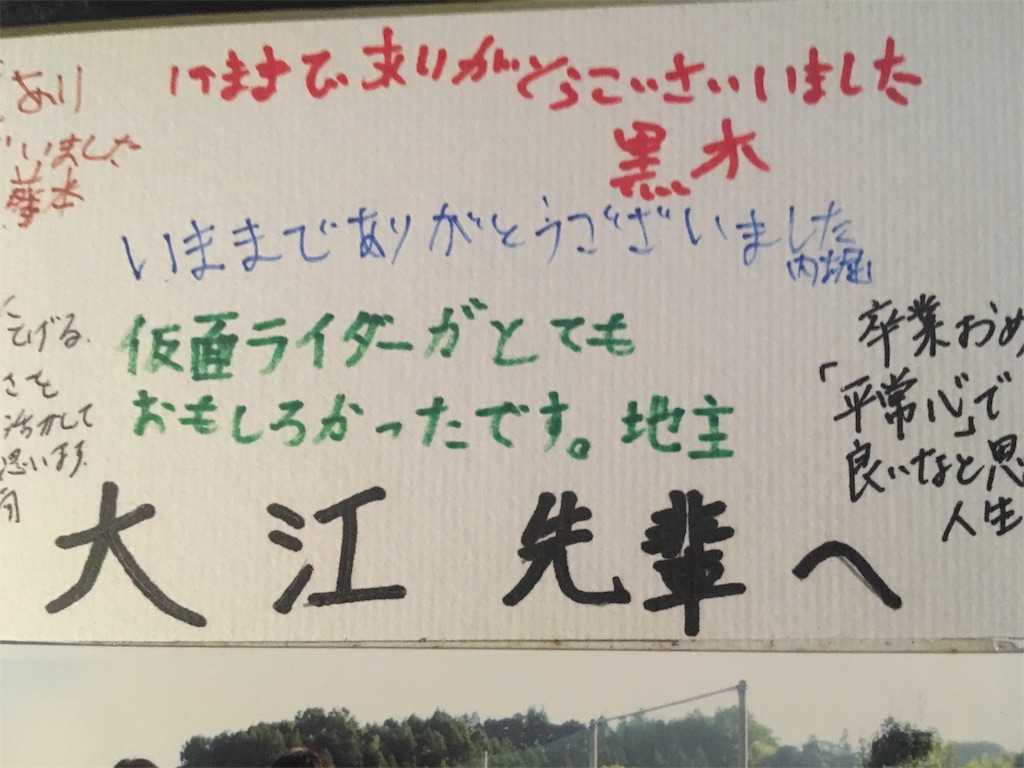 いままでありがとうございました
黒木
あり
いました
いままでありがとうございました
内堀
仮面ライダーがとても
おもしろかったです。地主
広げる
さを
活かして
思います
卒業おめ
「平常心」で
良いなと思
人生
大江先輩へ